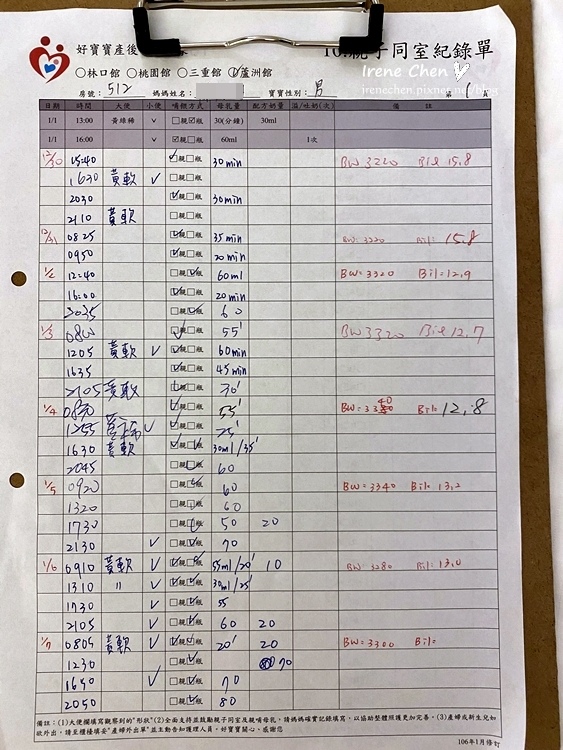 好寶寶產後
10.親子同室紀錄單
Irene Chen
irenechen.pixnet.net/blog
○林口館 ○桃園館 ○三重館 ○蘆洲館
房號：512 媽媽姓名： 寶寶性別：男 第 1
日期 時間 大便 小便 哺餵方式 母乳量 配方奶量 溢/吐奶(次) 備 註
1/1 13:00 黃綠稀 v □親☑瓶 30(分鐘) 30ml
1/1 16:00 v ☑親□瓶 60ml 1次
12/30 15:40 ☑親□瓶 30min BW 3220 Bil 15.8
1630 黃軟 ✓ □親□瓶
2030 ☑親□瓶 30min
2110 黃軟 □親□瓶
12/31 0825 ☑親□瓶 35min BW: 3220 Bil: 15.8
0950 ☑親□瓶 20min
1/2 12:40 □親☑瓶 60ml BW=3320 Bil=12.9
16:00 ☑親□瓶 20min
2035 □親☑瓶 60
1/3 ☑親□瓶 55' BW3320 Bil 12.7
1205 黃軟 ✓ ☑親□瓶 60min
1635 ☑親□瓶 45min
2105 黃軟 ☑親□瓶 30'
1/4 ☑親□瓶 55' BW=3340 Bil=12.8
1255 ✓ ☑親□瓶 25'
1630 黃軟 ☑親☑瓶 30ml/35'
2045 □親☑瓶 60
1/5 0920 □親☑瓶 60 BW=3340 Bil=13.2
1320 □親☑瓶 60
1730 □親☑瓶 50 20
2130 ✓ □親☑瓶 70
1/6 0910 黃軟 ✓ ☑親☑瓶 55ml/20' 10 BW=3280 Bil=13.0
1310 〃 ✓ ☑親☑瓶 30ml/25'
1730 ✓ □親☑瓶 55
2105 ✓ □親☑瓶 60 20
1/7 0805 黃軟 ✓ ☑親☑瓶 20' 20 BW=3300 Bil=
1230 □親☑瓶 70
1650 ✓ □親☑瓶 70
2050 □親☑瓶 80
備註：(1)大便欄填寫觀察到的"形狀"(2)全面支持並鼓勵親子同室及親哺母乳，請媽媽確實記錄填寫，以協助整體照護更加完善。(3)產婦或新生兒如
欲外出，請至櫃檯填妥"產婦外出單"並主動告知護理人員。好寶寶關心、感謝您
106年1月修訂